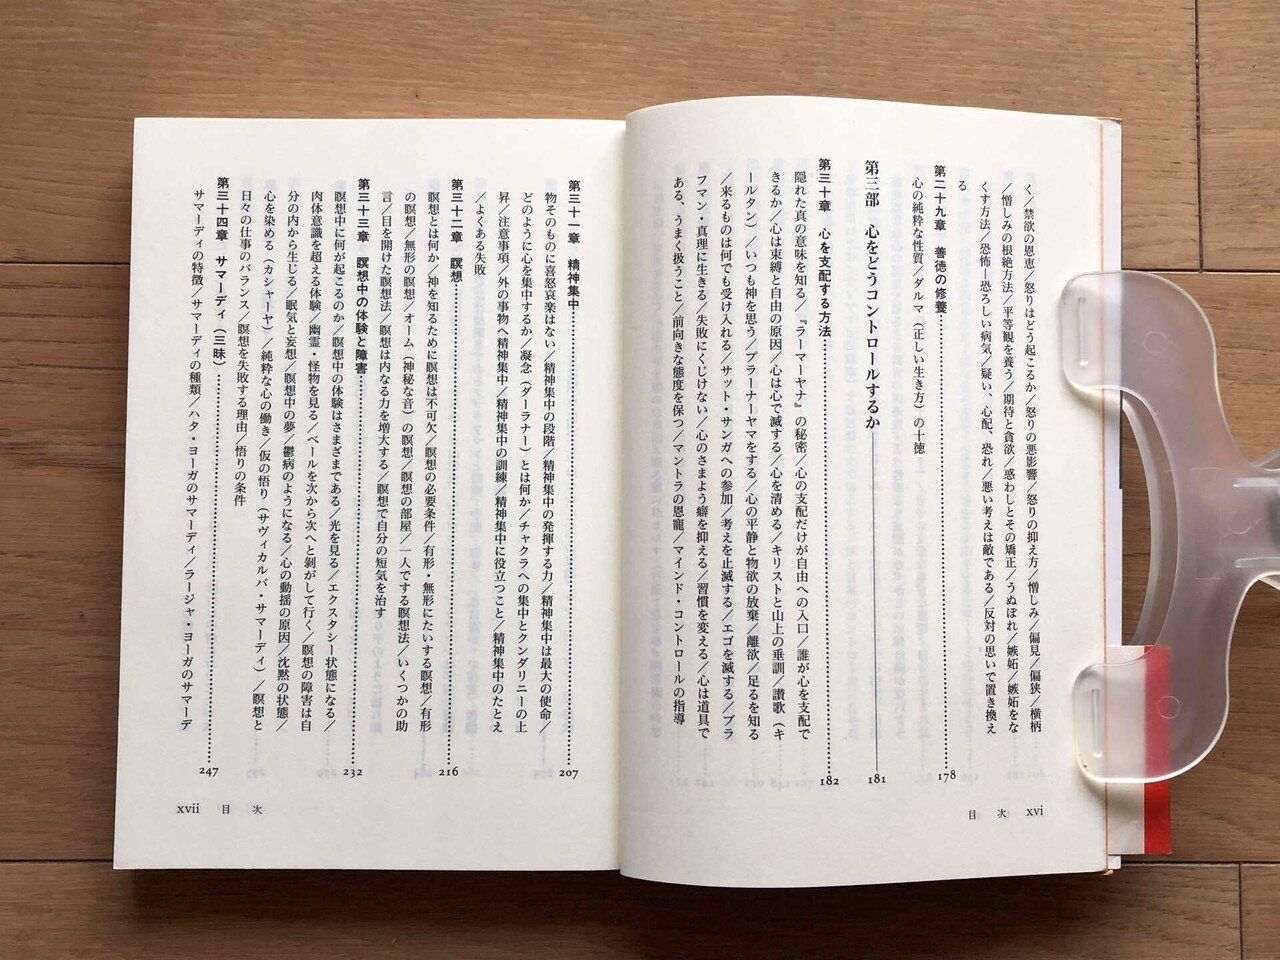 く／禁欲の恩恵／怒りはどう起こるか／怒りの悪影響／怒りの抑え方／憎しみ／偏見／偏狭／横柄
／憎しみの根絶方法／平等観を養う／期待と貪欲／惑わしとその矯正／うぬぼれ／嫉妬／嫉妬をな
くす方法／恐怖—恐ろしい病気／疑い、心配、恐れ／悪い考えは敵である／反対の思いで置き換え
る
第二十九章　善徳の修養 178
心の純粋な性質／ダルマ（正しい生き方）の十徳
第三部　心をどうコントロールするか 181
第三十章　心を支配する方法 182
隠れた真の意味を知る／『ラーマーヤナ』の秘密／心の支配だけが自由への入口／誰が心を支配で
きるか／心は束縛と自由の原因／心は心で滅する／心を清める／キリストと山上の垂訓／讃歌（キ
ールタン）／いつも神を思う／プラーナーヤマをする／心の平静と物欲の放棄／離欲／足るを知る
／来るものは何でも受け入れる／サット・サンガへの参加／考えを止滅する／エゴを滅する／ブラ
フマン・真理に生きる／失敗にくじけない／心のさまよう癖を抑える／習慣を変える／心は道具で
ある、うまく扱うこと／前向きな態度を保つ／マントラの恩寵／マインド・コントロールの指導
目次 xvi
第三十一章　精神集中 207
物そのものに喜怒哀楽はない／精神集中の段階／精神集中の発揮する力／精神集中は最大の使命／
どのように心を集中するか／凝念（ダーラナー）とは何か／チャクラへの集中とクンダリニーの上
昇／注意事項／外の事物へ精神集中／精神集中の訓練／精神集中に役立つこと／精神集中のたとえ
／よくある失敗
第三十二章　瞑想 216
瞑想とは何か／神を知るために瞑想は不可欠／瞑想の必要条件／有形・無形にたいする瞑想／有形
の瞑想／無形の瞑想／オーム（神秘な音）の瞑想／瞑想の部屋／一人でする瞑想法／いくつかの助
言／目を開けた瞑想法／瞑想は内なる力を増大する／瞑想で自分の短気を治す
第三十三章　瞑想中の体験と障害 232
瞑想中に何が起こるのか／瞑想中の体験はさまざまである／光を見る／エクスタシー状態になる／
肉体意識を超える体験／幽霊・怪物を見る／ベールを次から次へと剝がして行く／瞑想の障害は自
分の内から生じる／眠気と妄想／瞑想中の夢／鬱病のようになる／心の動揺の原因／沈黙の状態／
心を染める（カシャーヤ）／純粋な心の働き／仮の悟り（サヴィカルパ・サマーディ）／瞑想と
日々の仕事のバランス／瞑想を失敗する理由／悟りの条件
第三十四章　サマーディ（三昧） 247
サマーディの特徴／サマーディの種類／ハタ・ヨーガのサマーディ／ラージャ・ヨーガのサマーデ
xvii 目次